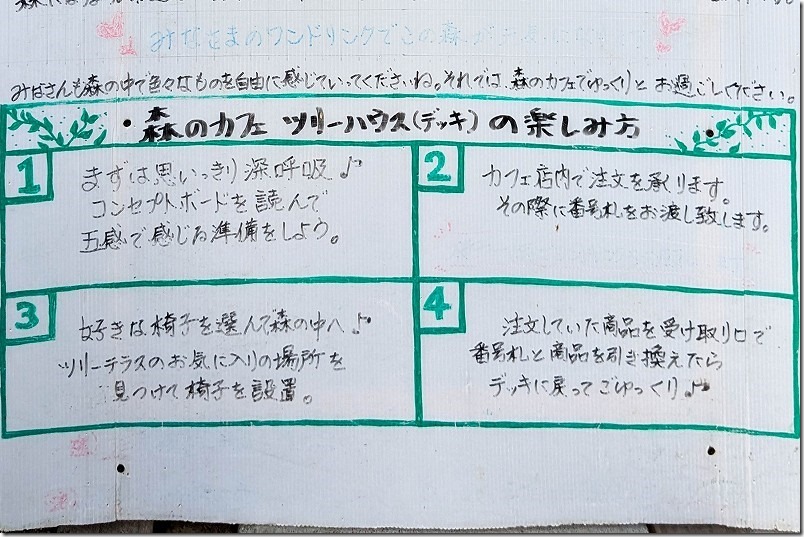 みなさまのワンドリンクでこの森が
みなさんも森の中で色々なものを自由に感じていってくださいね。それでは、森のカフェでゆっくりとお過ごしください。
・森のカフェ ツリーハウス(デッキ)の楽しみ方
1
まずは思いっきり深呼吸♪
コンセプトボードを読んで
五感で感じる準備をしよう。
2
カフェ店内で注文を承ります。
その際に番号札をお渡し致します。
3
好きな椅子を選んで森の中へ♪
ツリーテラスのお気に入りの場所を
見つけて椅子を設置。
4
注文していた商品を受け取り口で
番号札と商品を引き換えたら
デッキに戻ってごゆっくり♪